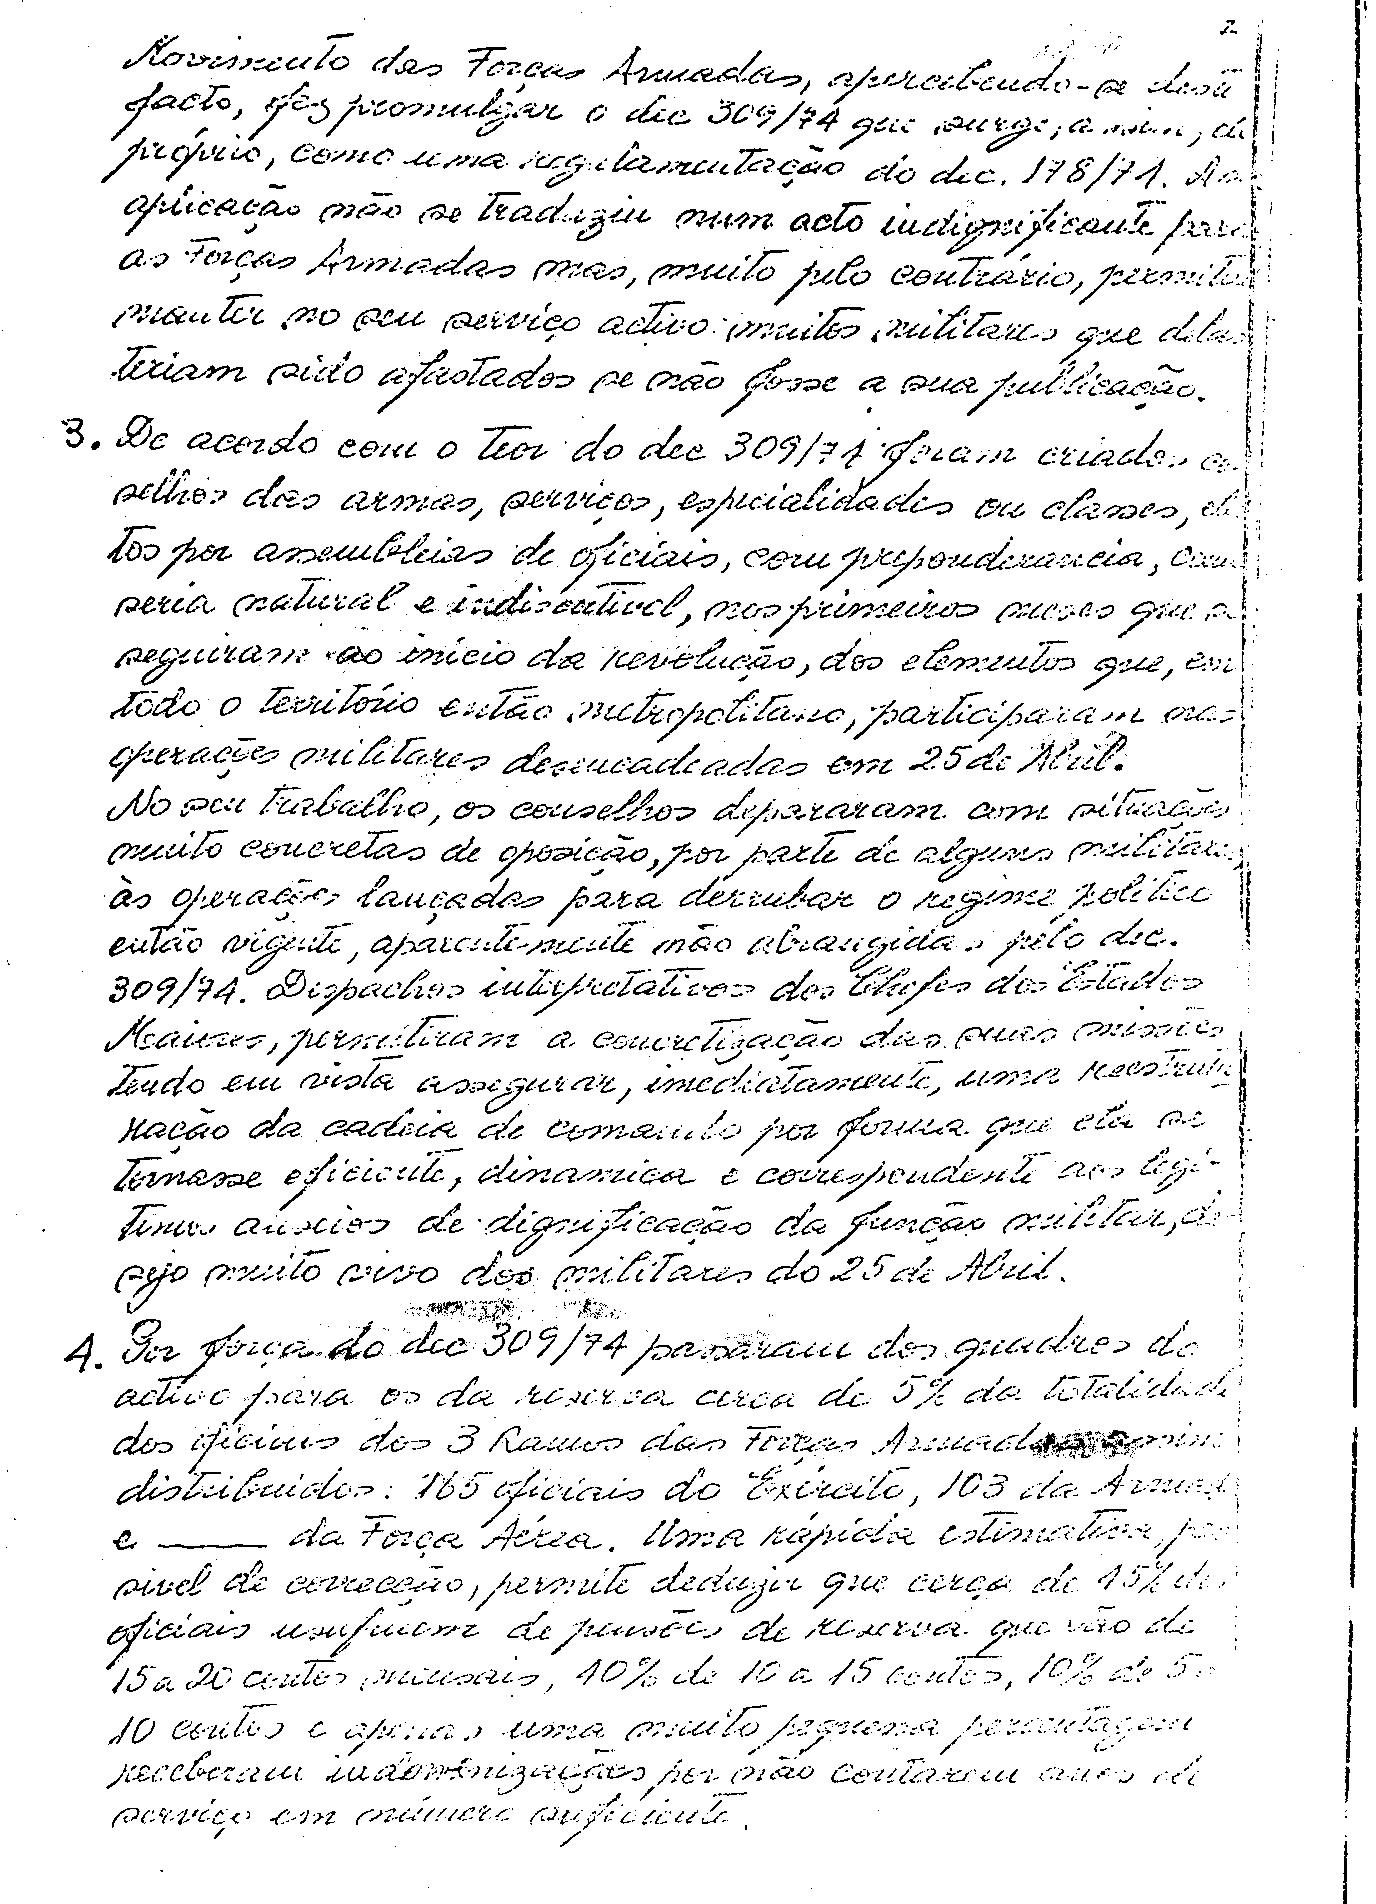 2
Movimento das Forças Armadas, apercebendo-se deste
facto, fez promulgar o dec 309/74 que surge, assim, de
próprio, como uma regulamentação do dec. 178/74. A sua
aplicação não se traduziu num acto indignificante para
as Forças Armadas mas, muito pelo contrário, permitiu
manter no seu serviço activo muitos militares que delas
teriam sido afastados se não fosse a sua publicação.
3. De acordo com o teor do dec 309/74 foram criados con
selhos das armas, serviços, especialidades ou classes, elei
tos por assembleias de oficiais, com preponderancia, como
seria natural e indiscutivel, nos primeiros meses que se
seguiram ao início da revolução, dos elementos que, em
todo o território então metropolitano, participaram nas
operações militares desencadeadas em 25 de Abril.
No seu trabalho, os conselhos depararam com situações
muito concretas de oposição, por parte de alguns militares,
às operações lançadas para derrubar o regime politico
então vigente, aparentemente não abrangidas pelo dec.
309/74. Despachos interpretativos dos Chefes dos Estados
Maiores, permitiram a concretização das suas missões
tendo em vista assegurar, imediatamente, uma reestrutu
ração da cadeia de comando por forma que ela se
tornasse eficiente, dinamica e correspondente aos legi-
timos anseios de dignificação da função militar, de-
sejo muito vivo dos militares do 25 de Abril.
4. Por força do dec 309/74 passaram dos quadros do
activo para os da reserva cerca de 5% da totalidade
dos oficiais dos 3 Ramos das Forças Armadas assim
distribuidos: 165 oficiais do Exército, 103 da Armada
e ____ da Força Aérea. Uma rápida estimativa, pas
sivel de correcção, permite deduzir que cerca de 45% dos
oficiais usufruem de pensões de reserva que vão de
15 a 20 contos mensais, 40% de 10 a 15 contos, 10% de 5 a
10 contos e apenas uma muito pequena percentagem
receberam indemnizações por não contarem anos de
serviço em número suficiente.